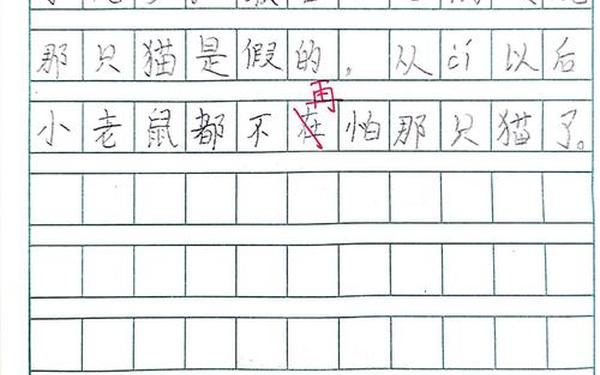 那只猫是假的，从cí以后
再
小老鼠都不在怕那只猫了。